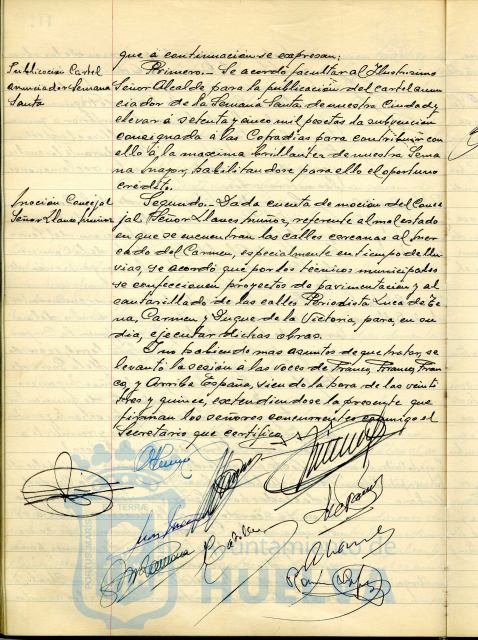 que a continuación se expresan:
Publicación Cartel
anunciador Semana
Santa
Primero.- Se acordó facultar al Ilustrísimo
Señor Alcalde para la publicación del cartel anun-
ciador de la Semana Santa de nuestra Ciudad y
elevar a setenta y cinco mil pesetas la subvención
consignada a las Cofradías para contribuir con
ello a la maxima brillantez de nuestra Sema
na Mayor, habilitandose para ello el oportuno
crédito.
Moción Concejal
Señor Llanes Muñoz
Segundo.- Dada cuenta de moción del Conce
jal Señor Llanes Muñoz, referente al mal estado
en que se encuentran las calles cercanas al Mer
cado del Carmen, especialmente en tiempo de llu
vias, se acordó que por los técnicos municipales
se confeccionen proyectos de pavimentación y al
cantarillado de las calles Periodista Luca de Te
na, Carmen y Duque de la Victoria, para, en su
dia, ejecutar dichas obras.
Y no habiendo mas asuntos de que tratar, se
levantó la sesión a las voces de Franco, Franco, Fran
co, y Arriba España, siendo la hora de las veinti
tres y quince, extendiendose la presente que
firman los señores concurrentes conmigo el
Secretario que certifico
TERRAE
Ayuntamiento de
HUELVA